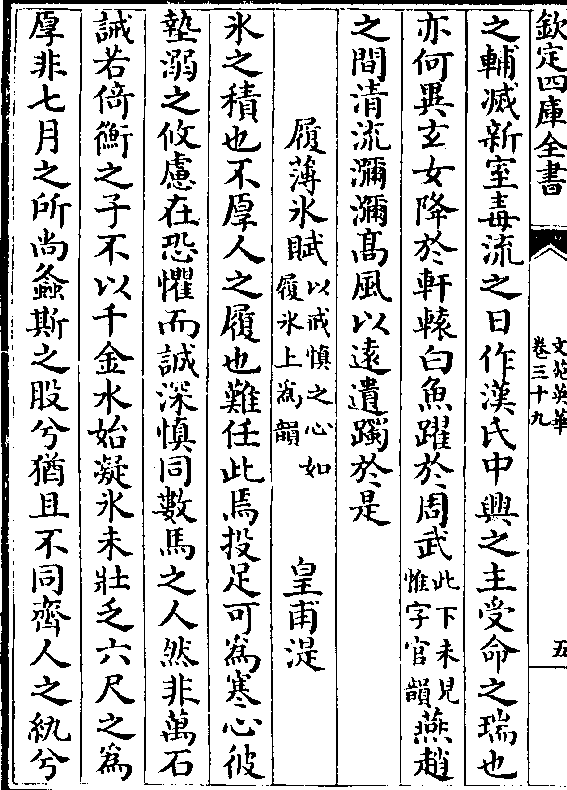 欽定四庫全書
文苑英華
卷三十九
五
之輔滅新室毒流之日作漢氏中興之主受命之瑞也
亦何異玄女降於軒轅白魚躍於周武此下未見惟字官韻燕趙
之間清流瀰瀰髙風以逺遺躅於是
履薄氷賦以戒慎之心如履氷上為韻 皇甫湜
氷之積也不厚人之履也難任此焉投足可為寒心彼
墊溺之攸慮在恐懼而誠深慎同數馬之人然非萬石
誡若倚衡之子不以千金水始凝氷未壯乏六尺之為
厚非七月之所尚螽斯之股兮猶且不同齊人之紈兮